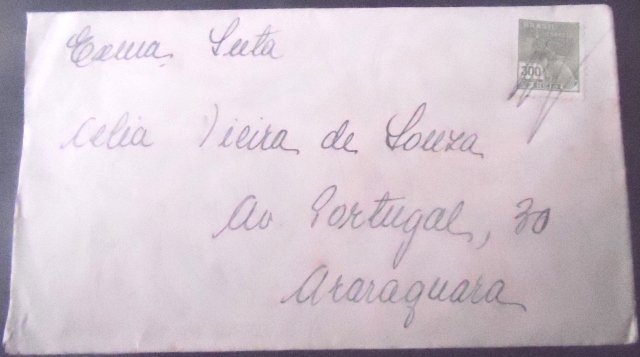 Exma. Snta
Celia Vieira de Souza
Av Portugal, 30
Araraquara
BRASIL
300